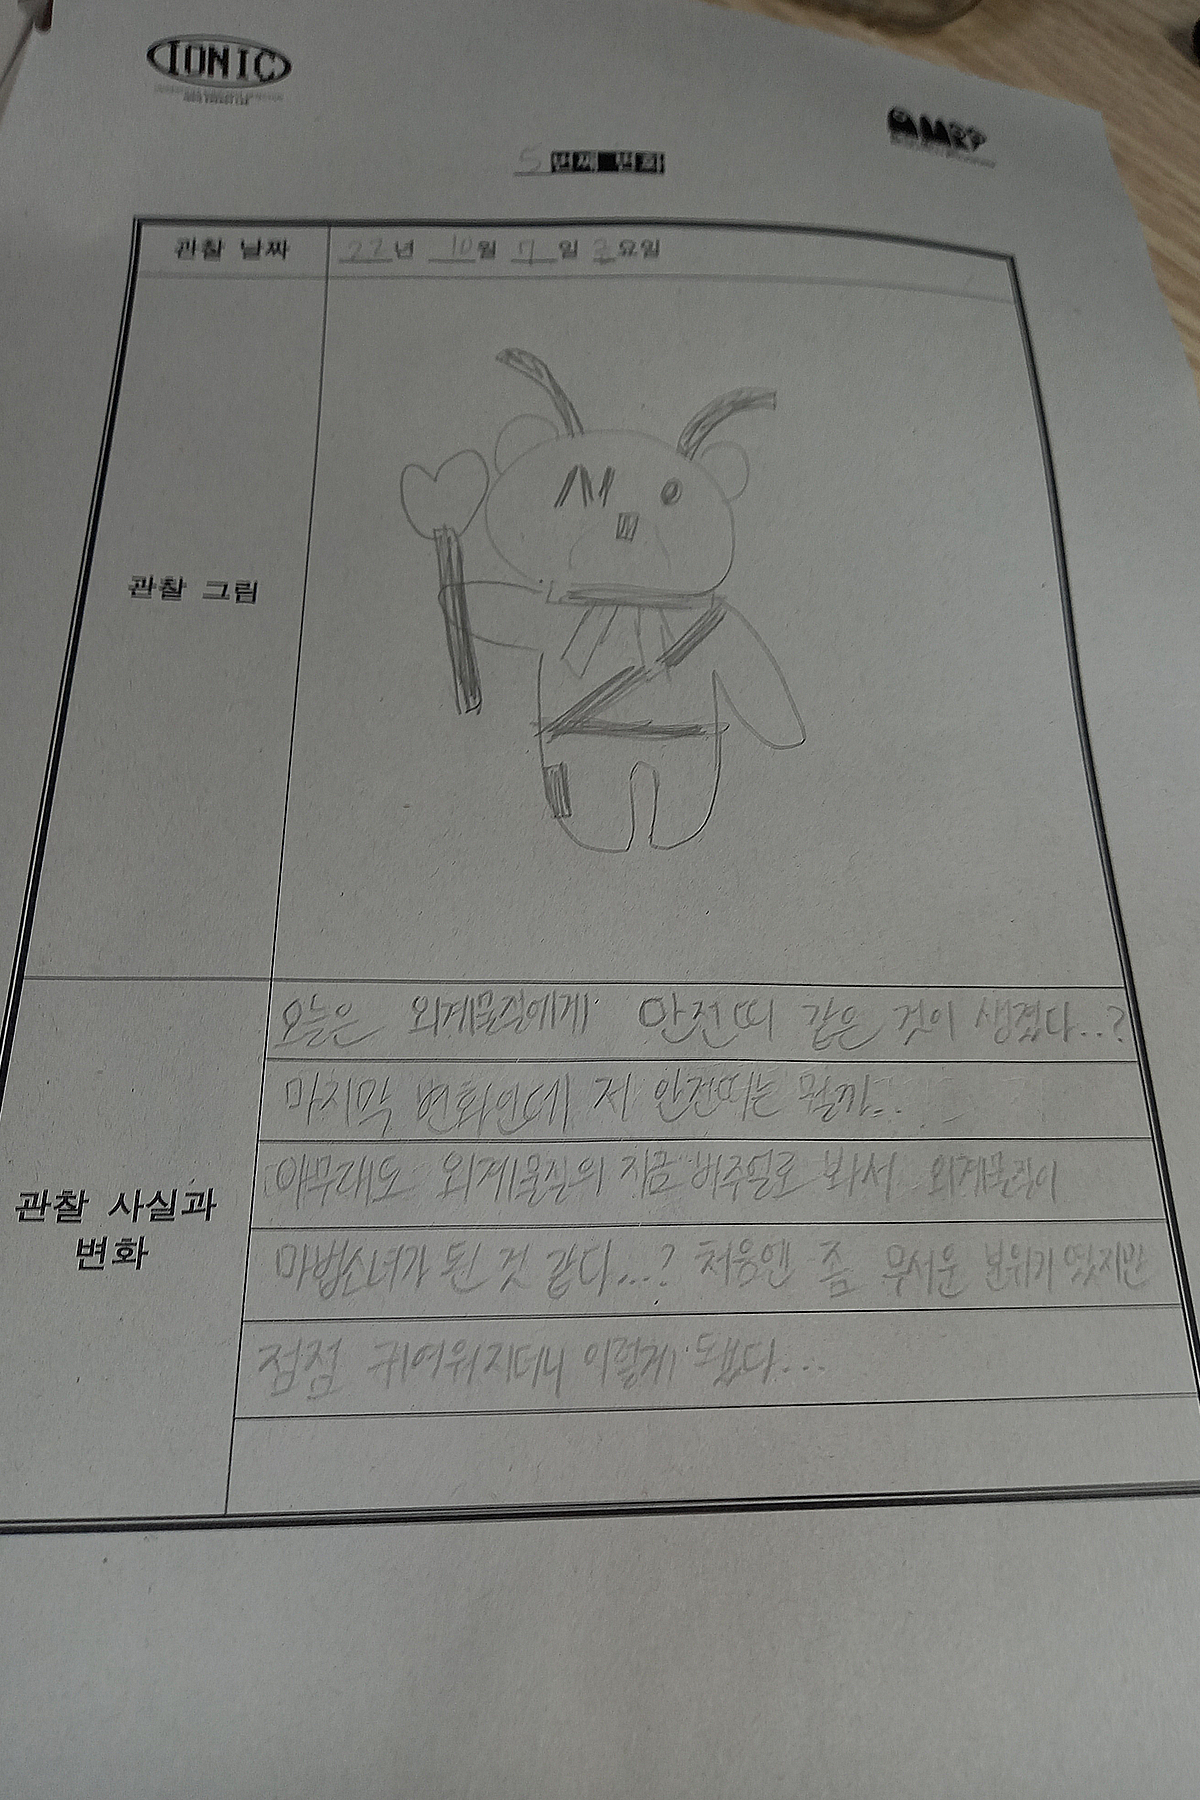 IONIC
5 번째 변화
관찰 날짜 22년 10월 7일 금요일
관찰 그림
오늘은 외계물질에게 안전띠 같은 것이 생겼다..?
마지막 변화인데 저 안전띠는 뭘까..
관찰 사실과 변화
아무래도 외계물질의 지금 비주얼로 봐서 외계물질이
마법소녀가 된 것 같다...? 처음엔 좀 무서운 분위기였지만
점점 귀여워지더니 이렇게 됐다...